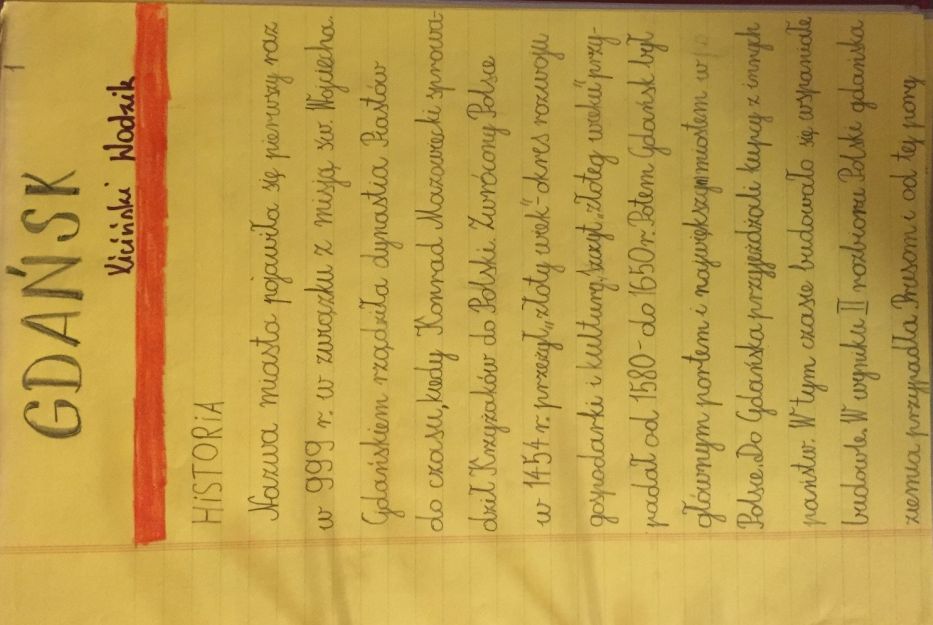 1
GDAŃSK
Kiciński Wodzik
HiSTORiA
Nazwa miasta pojawiła się pierwszy raz
w 999 r. w związku z misją św. Wojciecha.
Gdańskiem rządziła dynastia Piastów
do czasu, kiedy Konrad Mazowiecki sprowa-
dził Krzyżaków do Polski. Zwrócony Polsce
w 1454 r. przeżył „złoty wiek"- okres rozwoju
gospodarki i kultury, szczyt „złoteg wieku" przy-
padał od 1580- do 1650 r. Potem Gdańsk był
głównym portem i największym miastem w
Polsce. Do Gdańska przyjeżdżali kupcy z innych
państw. W tym czasie budowało się wspaniałe
budowle. W wyniku II rozbioru Polski gdańska
ziemia przypadła Prusom i od tej pory